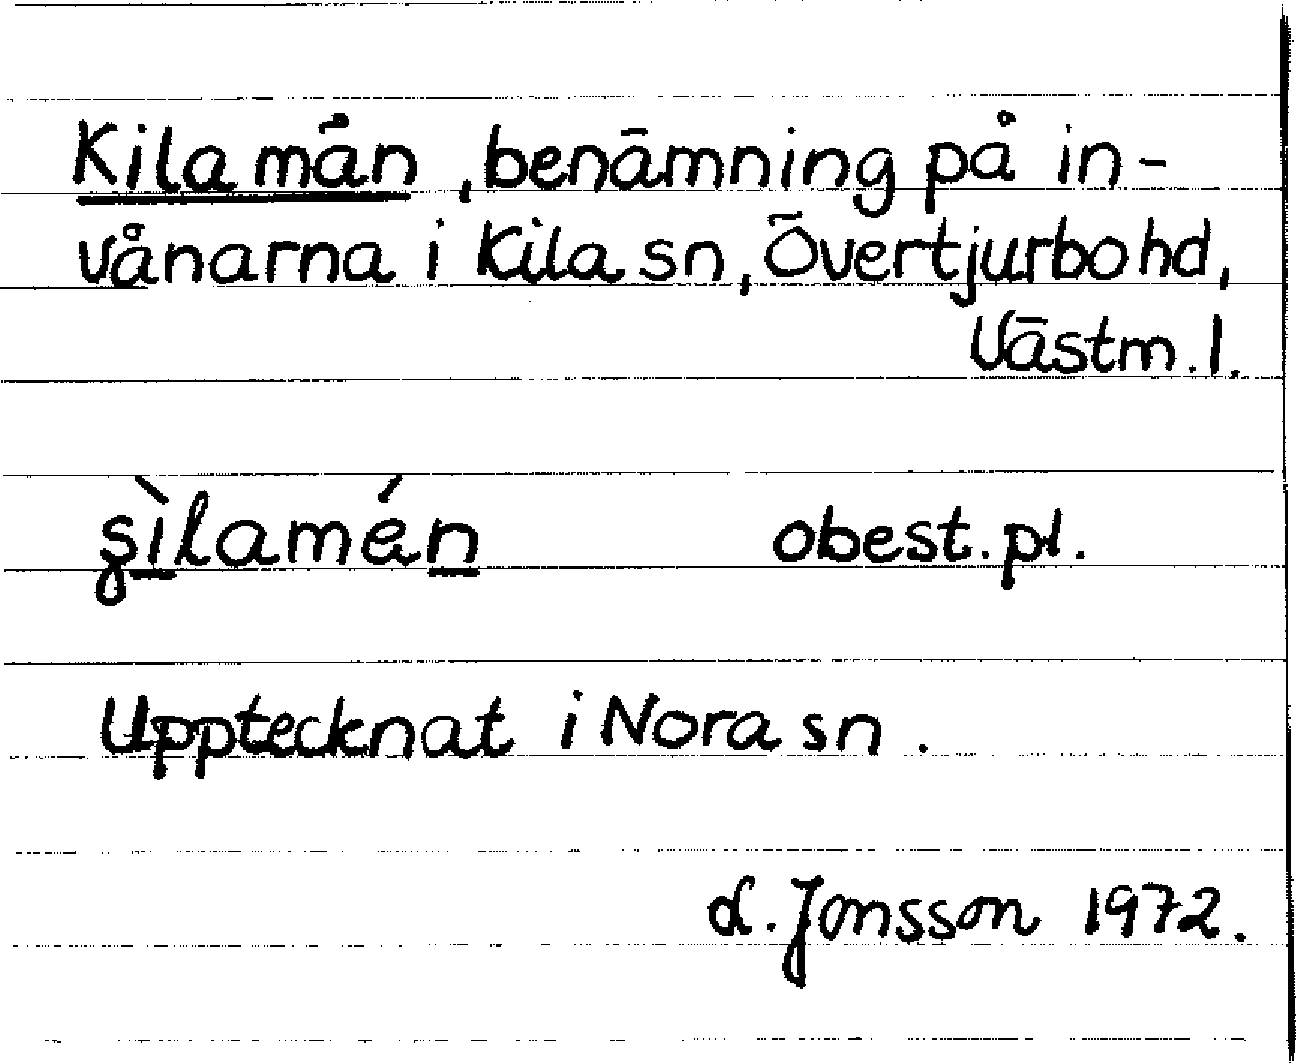 Kilamän, benämning på in-
vånarna i Kila sn, Övertjurbo hd,
Västm. l.
obest. pl.
Upptecknat i Nora sn.
L. Jonsson 1972.